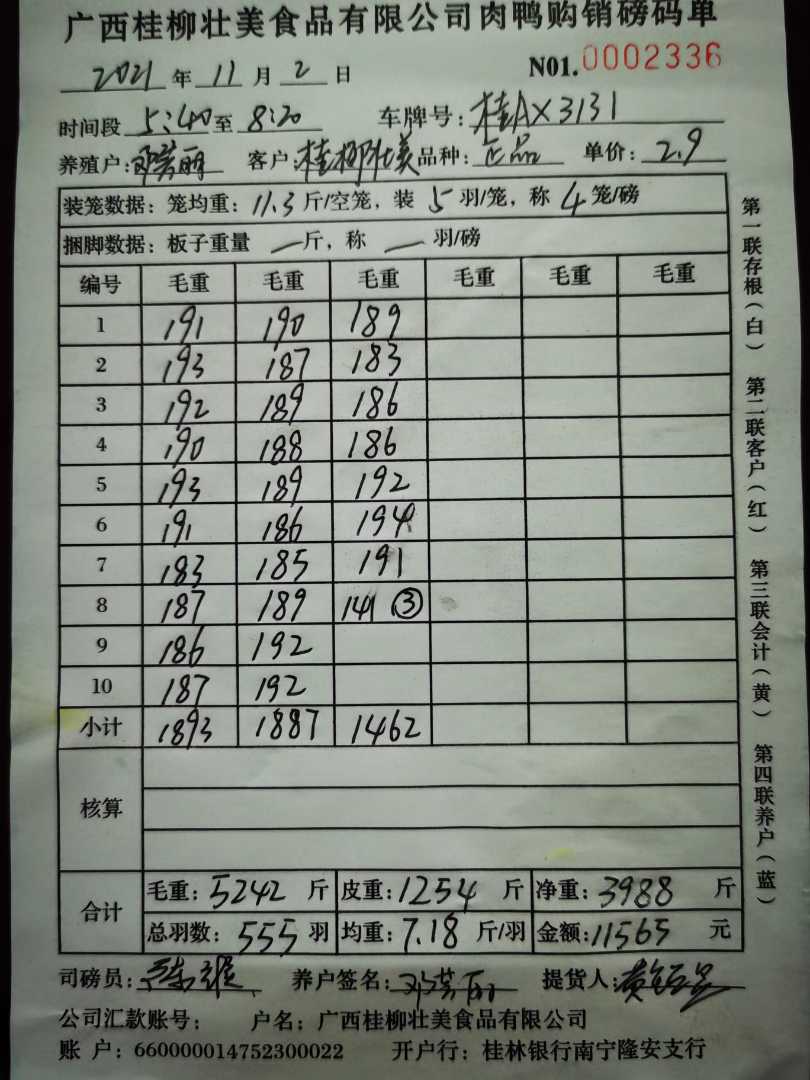 广西桂柳壮美食品有限公司肉鸭购销磅码单
2021年11月2日 N01.0002336
时间段5:40至8:20 车牌号:桂AX3131
养殖户:邓芳丽 客户:桂柳壮美 品种:正品 单价:2.9
装笼数据:笼均重:11.3斤/空笼,装5羽/笼,称4笼/磅
捆脚数据:板子重量 一斤,称 一 羽/磅
编号 毛重 毛重 毛重 毛重 毛重 毛重
1 191 190 189
2 193 187 183
3 192 189 186
4 190 188 186
5 193 189 192
6 191 186 194
7 183 185 191
8 187 189 141 ③
9 186 192
10 187 192
小计 1893 1887 1462
核算
合计 毛重:5242斤 皮重:1254斤 净重:3988斤
总羽数:555羽 均重:7.18斤/羽 金额:11565元
司磅员: 养户签名:邓芳丽 提货人:
公司汇款账号: 户名:广西桂柳壮美食品有限公司
账 户:660000014752300022 开户行:桂林银行南宁隆安支行
第一联存根(白) 第二联客户(红) 第三联会计(黄) 第四联养户(蓝)